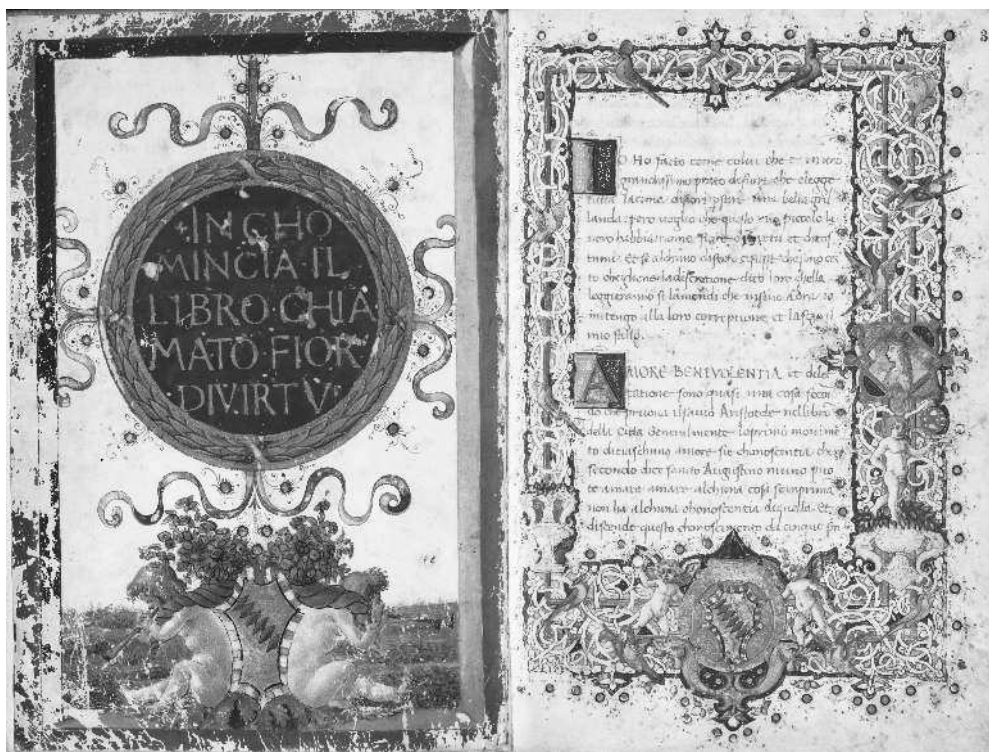 +INCHO
MINCIA·IL
LIBRO·CHIA
MATO·FIOR
·DIV.IRTV:
3
IO Ho facto come colui che e in uno
grandissimo prato di fiori che elegge
tutta lacima di fiori per fare una bella gril
landa: pero voglio che questo mio piccolo la
voro habbia nome fiore di virtu et di costu
mi. Et se alchuno
to che
loro correptione et
mio fallo.
AMORE BENIVOLENTIA et dele
ctatione sono quasi una cosa secon
do che pruova ilsavio Aristotile nellibro
della Citta Generalmente loprimo movimen
to diciaschuno amore sie chonoscentia che
secondo dice sancto Augustino niuno puo
te amare alchuna cosa se inprima
non ha alchuna chonoscentia di quella. Et
discende questo chonoscimento da cinque sen